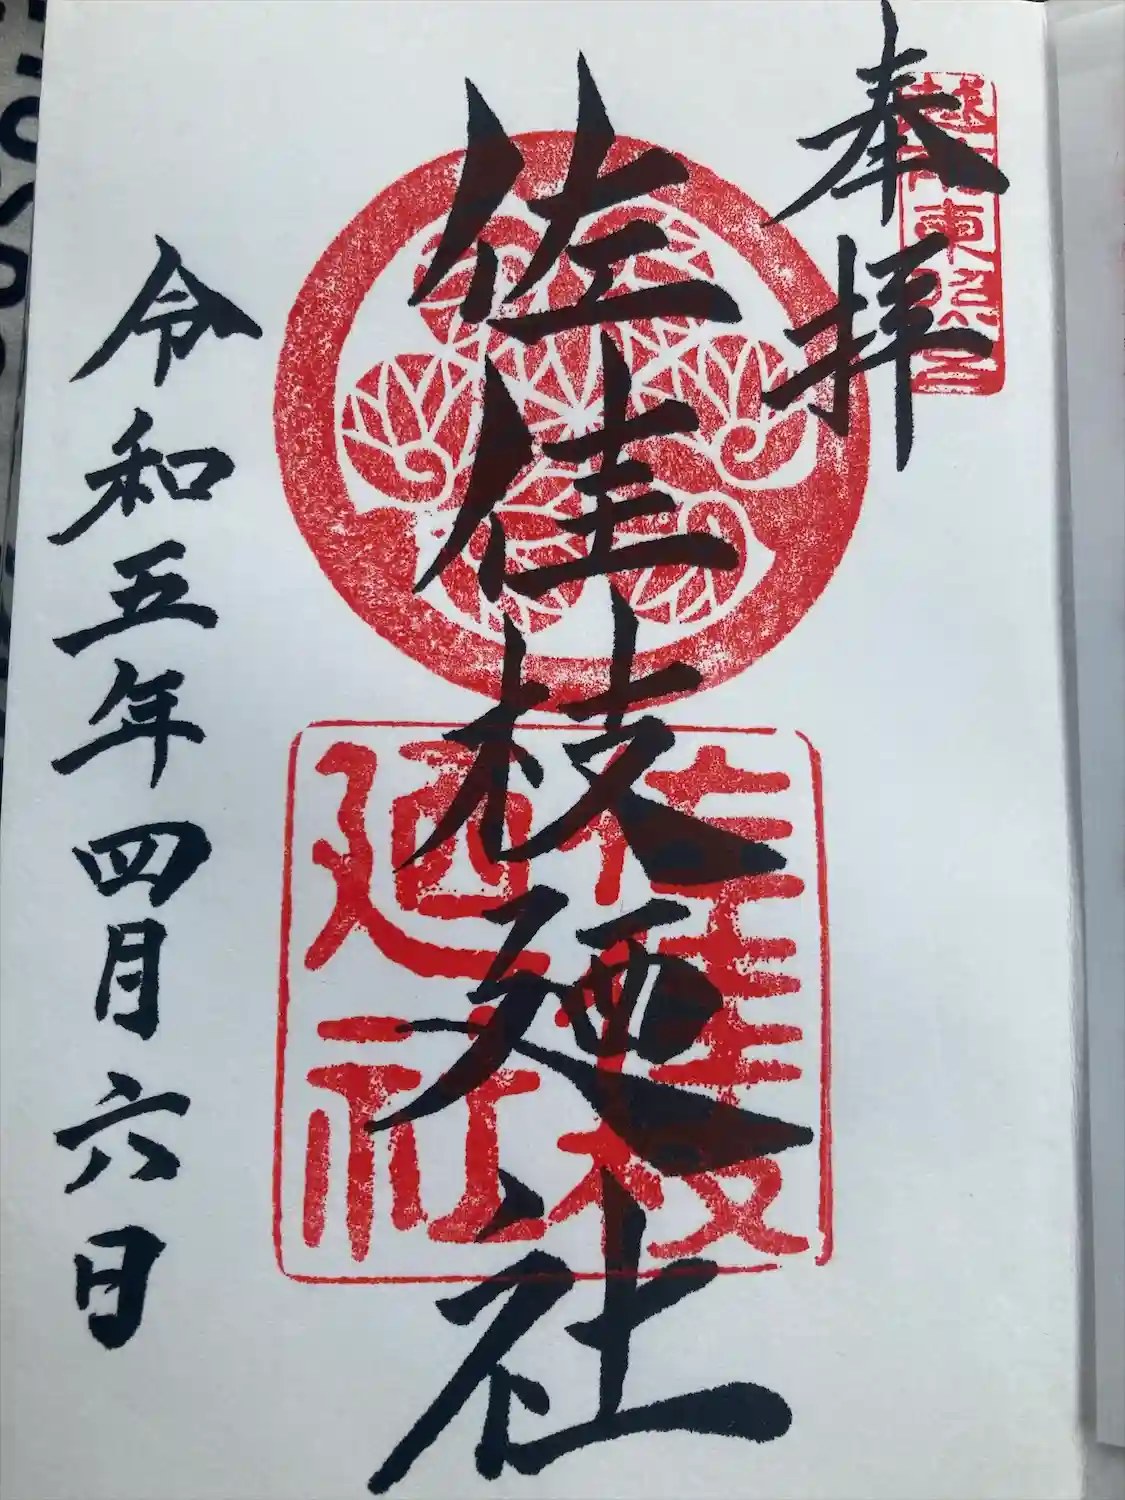 奉拝
越前東照宮
佐佳枝廼社
佐佳枝
廼社
令和五年四月六日